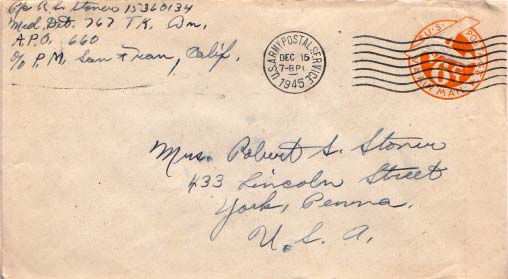 Cpl R. S. Stoner 15360134
Med. Det. 767 TK. Bn.
A.P.O. 660
c/o P.M. San Fran, Calif.
U.S. ARMY POSTAL SERVICE
DEC 15
7-8 PM
1945
U.S. POSTAGE
06
AIR MAIL
Mrs. Robert S. Stoner
433 Lincoln Street
York, Penna.
U. S. A.